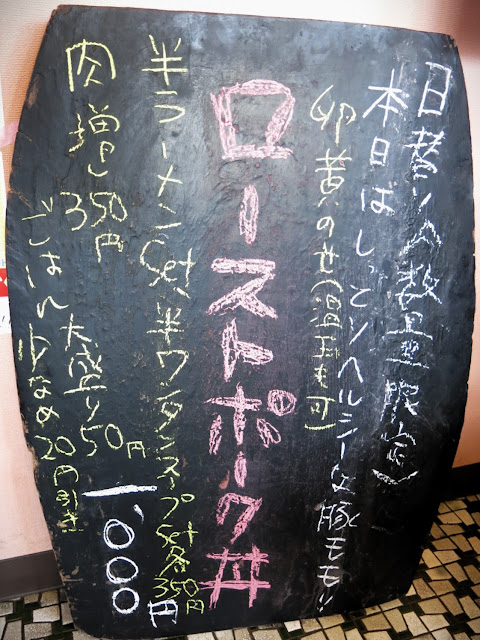 日替り(数量限定)
本日はしっとりヘルシーな豚モモ!!
卵黄のせ(温玉も可)
ローストポーク丼
一、000円
半ラーメンSet、半ワンタンスープSet各350円
肉増し350円 大盛り50円
ごはん少なめ20円引き